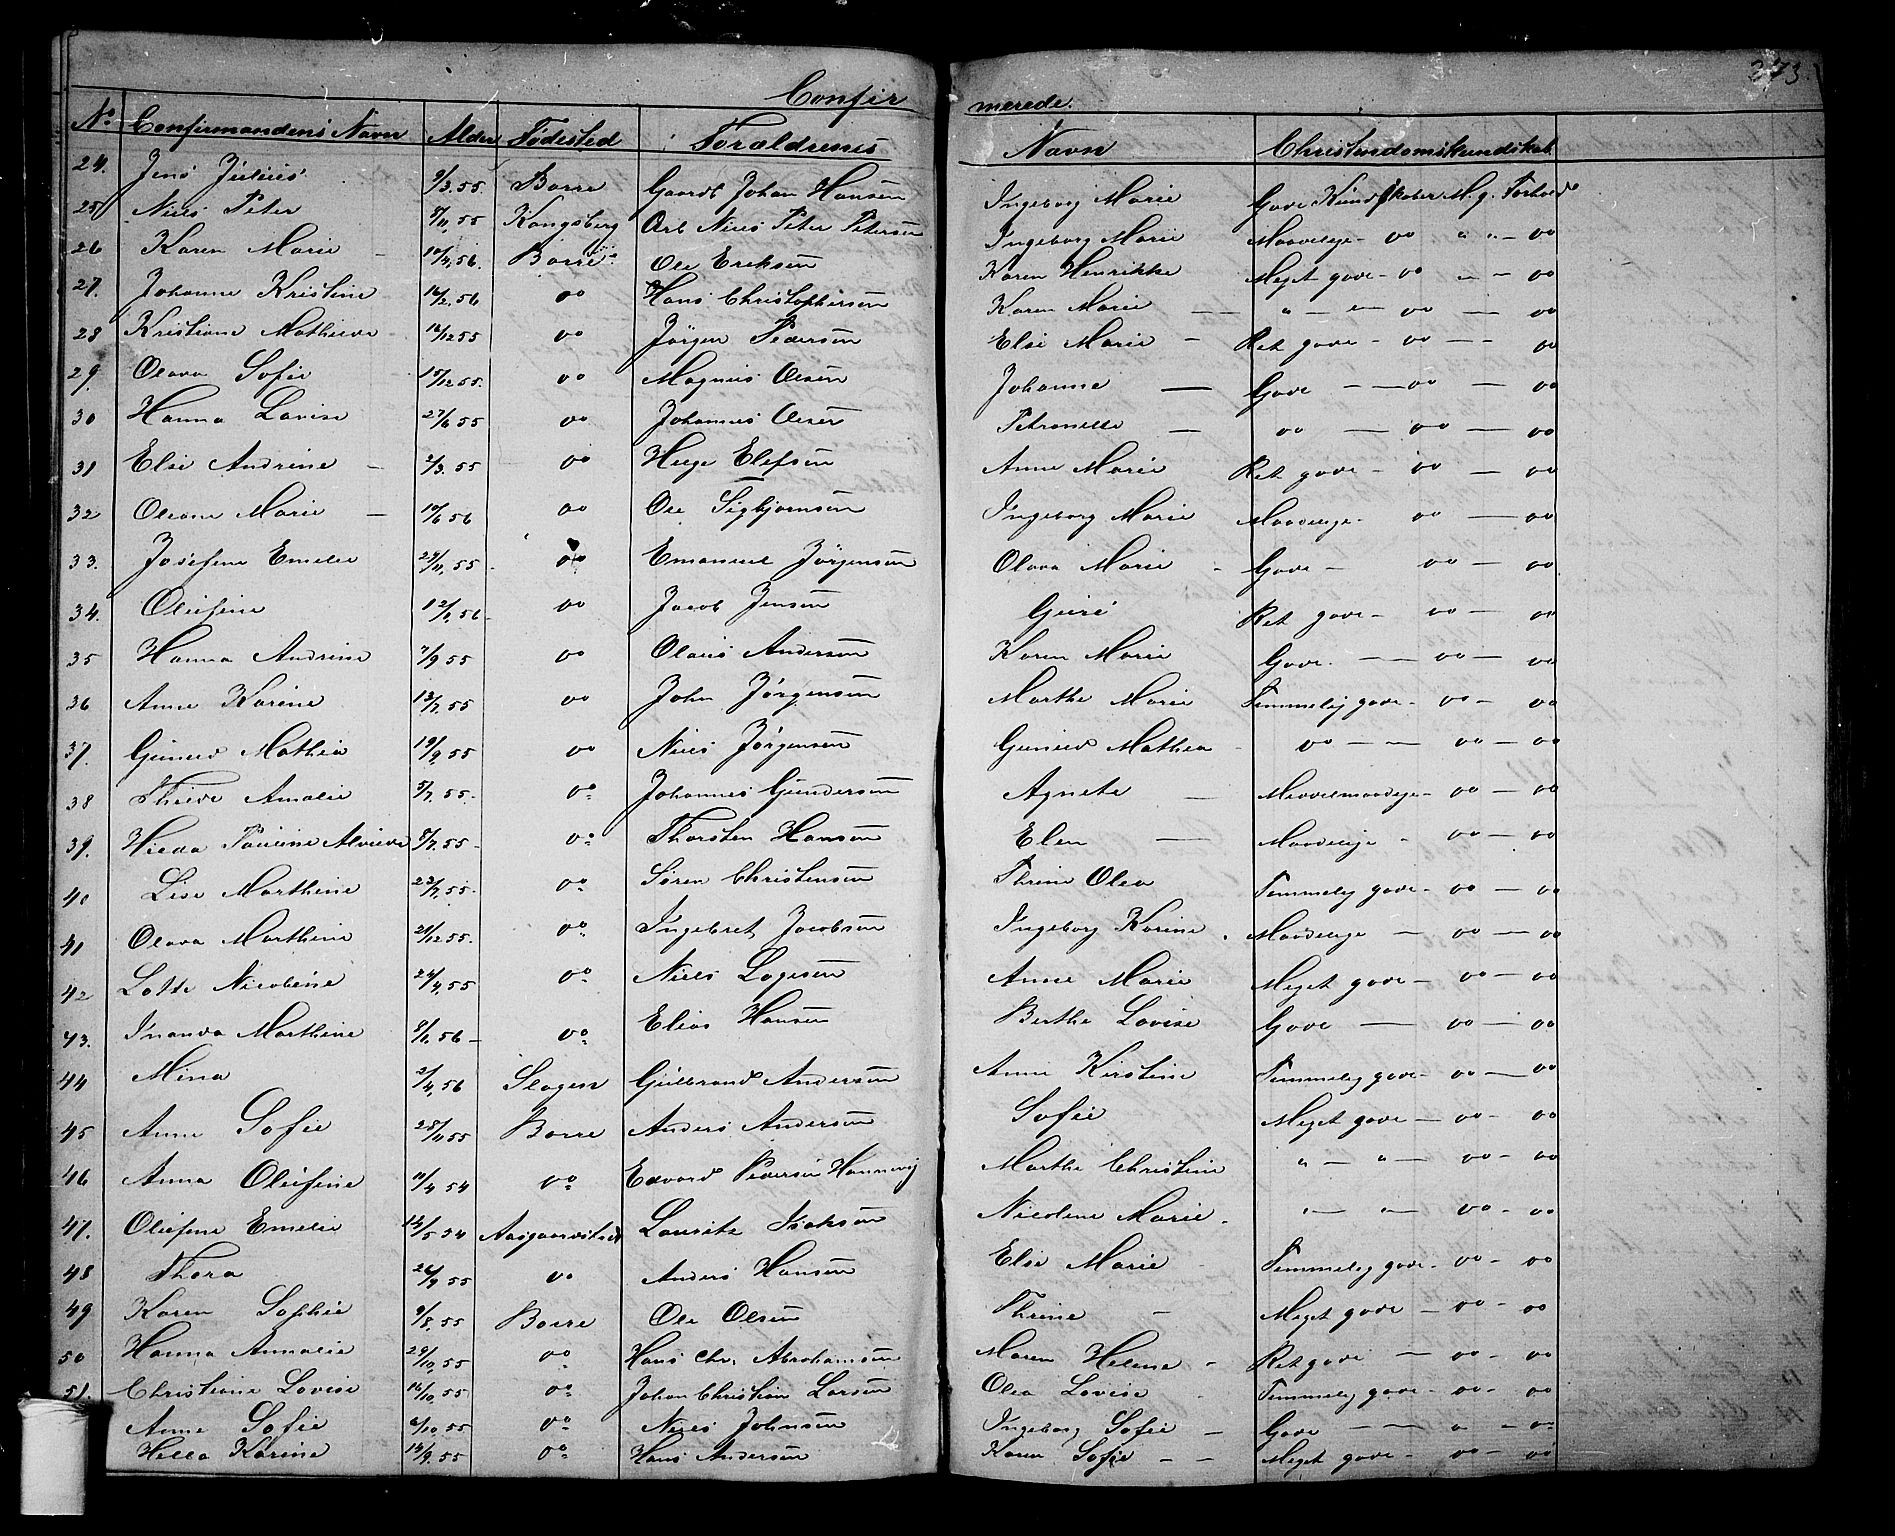 273.
Confir merede.
No Confirmandens Navn Alder Fødested Forældrenes Navn Christendomskundskab
24. Jens Julius 9/3.55. Borre Gaardb Johan Hansen Ingeborg Marie Gode Kundskaber M. g. Forhold
25 Niels Peter 8/11.55 Kongsberg Arb Niels Peter Petersen Ingeborg Marie Maadelige - do " " - do
26 Karen Marie - 10/4.56. Borre Ole Eriksen Karen Henrikke Meget gode - do - - do
27. Johanne Kristine 16/2.56 do Hans Christophersen Karen Marie - - " - " - do - do
28 Kristiane Mathilde 16/12 55 do Jørgen Pedersen Else Marie - Ret gode - do - - do
29. Olava Sofie 15/12 55. do Magnus Olsen Johanne - Gode - - do - do
30 Hanna Lovise 27/6 55 do Johannes Olsen Petronelle - do - do - do
31 Else Andrine - 2/3.55 do Helge Elefsen Anne Marie Ret gode - do - do
32 Oleane Marie - 10/6 56 do Ole Sigbjørnsen Ingeborg Marie Maadelige - do - do
33. Josefine Emilie 29/11.55 - do Emanuel Jørgensen Olava Marie - Gode - do - do
34. Olufine 12/2.56 - do Jacob Jensen Guri Ret gode - do - do
35 Hanna Andrine 7/9 55 do Olaus Andersen Karen Marie Gode. - - do - do
36 Anne Karine 13/7.55 do John Jørgensen Marthe Marie Temmelig gode - do - do
37. Gunild Mathea 19/9.55 do Niels Jørgensen Gunild Mathea - do - - do - do
38 Thrude Amalie 5/7.55 - do Johannes Gundersen Agnete - Middelmaadige - do - do
39. Hilda Pauline Alvilde 8/7.55 - do Thorsten Hansen Elen - Maadelige - do - do
40 Lise Marthine 22/7.55. do Søren Christensen Thrine Olea Temmelig gode - do - do
41 Olava Marthine 21/12 55. do Ingebret Jacobsen Ingeborg Karine. Maadelige - do - do
42 Lotte Nicoline 24/4.55 do Niels Lagesen Anne Marie Meget gode - do - do
43. Inanda Marthine 8/1.56 - do Elias Hansen Berthe Lovise Gode - do - do
44 Mina 2/4.56 Slagen Gulbrand Andersen Anne Kirstine Temmelig gode - do - do
45 Anne Sofie 25/11 55 Borre Anders Andersen Sofie Meget gode - do - do
46 Anna Olufine 11/4 54 do Edvard Pedersen Hannevig Marthe Christine " - " - do - do
47. Olufine Emilie 13/5 54 Aasgaardstrand Lauritz Isaksen Nicoline Marie - " - " - do - do
48 Thora 26/9 55 do Anders Hansen Else Marie Temmelig gode - do - do
49 Karen Sophie 9/8.55 Borre Ole Olsen Thrine - Meget gode - do - do
50 Hanna Annalie 29/10.55 do Hans Chr. Abrahamsen Maren Helene - Ret gode - do - do
51. Christiane Lovise 16/10.55 do Johan Christian Larsen Olea Lovise Temmelig gode - do - do
Anne Sofie 6/10.55 do Niels Johnsen Ingeborg Sofie - Gode - - " - do
Hella Karine 13/9.55 do Hans Andersen Karen Sofie - - Meget gode - do - do